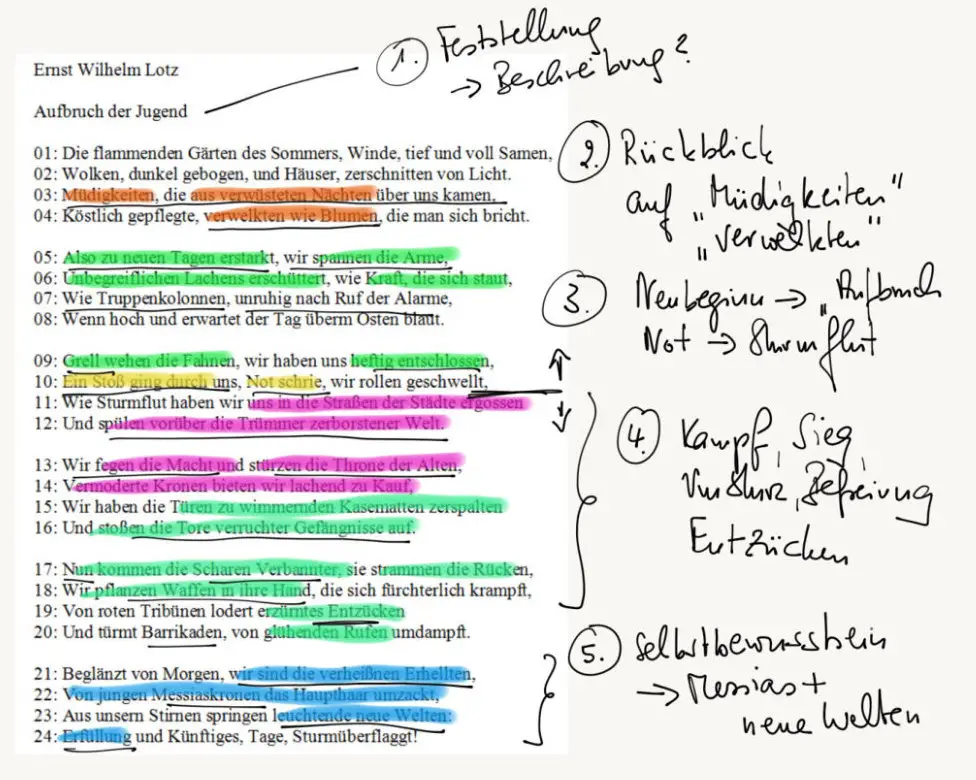 Ernst Wilhelm Lotz
Aufbruch der Jugend
01: Die flammenden Gärten des Sommers, Winde, tief und voll Samen,
02: Wolken, dunkel gebogen, und Häuser, zerschnitten von Licht.
03: Müdigkeiten, die aus verwüsteten Nächten über uns kamen,
04: Köstlich gepflegte, verwelkten wie Blumen, die man sich bricht.
05: Also zu neuen Tagen erstarkt, wir spannen die Arme,
06: Unbegreiflichen Lachens erschüttert, wie Kraft, die sich staut,
07: Wie Truppenkolonnen, unruhig nach Ruf der Alarme,
08: Wenn hoch und erwartet der Tag überm Osten blaut.
09: Grell wehen die Fahnen, wir haben uns heftig entschlossen,
10: Ein Stoß ging durch uns, Not schrie, wir rollen geschwellt,
11: Wie Sturmflut haben wir uns in die Straßen der Städte ergossen
12: Und spülen vorüber die Trümmer zerborstener Welt.
13: Wir fegen die Macht und stürzen die Throne der Alten,
14: Vermoderte Kronen bieten wir lachend zu Kauf,
15: Wir haben die Türen zu wimmernden Kasematten zerspalten
16: Und stoßen die Tore verruchter Gefängnisse auf.
17: Nun kommen die Scharen Verbannter, sie strammen die Rücken,
18: Wir pflanzen Waffen in ihre Hand, die sich fürchterlich krampft,
19: Von roten Tribünen lodert erzürntes Entzücken
20: Und türmt Barrikaden, von glühenden Rufen umdampft.
21: Beglänzt von Morgen, wir sind die verheißnen Erhellten,
22: Von jungen Messiaskronen das Haupthaar umzackt,
23: Aus unsern Stirnen springen leuchtende neue Welten:
24: Erfüllung und Künftiges, Tage, Sturmüberflaggt!
1. Feststellung
→ Beschreibung?
2. Rückblick
auf „Müdigkeiten"
„verwelkten"
3. Neubeginn → „Aufbruch
Not → Sturmflut
4. Kampf, Sieg
Umsturz, Befreiung
Entzücken
5. Selbstbewusstsein
→ Messias +
neue Welten